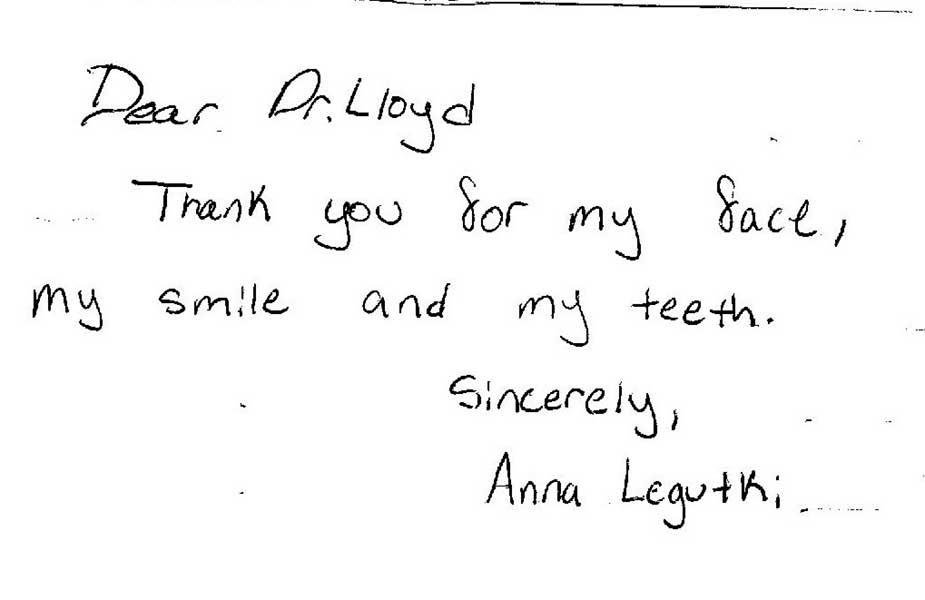 Dear Dr. Lloyd
Thank you for my face,
my smile and my teeth.
Sincerely,
Anna Legutki